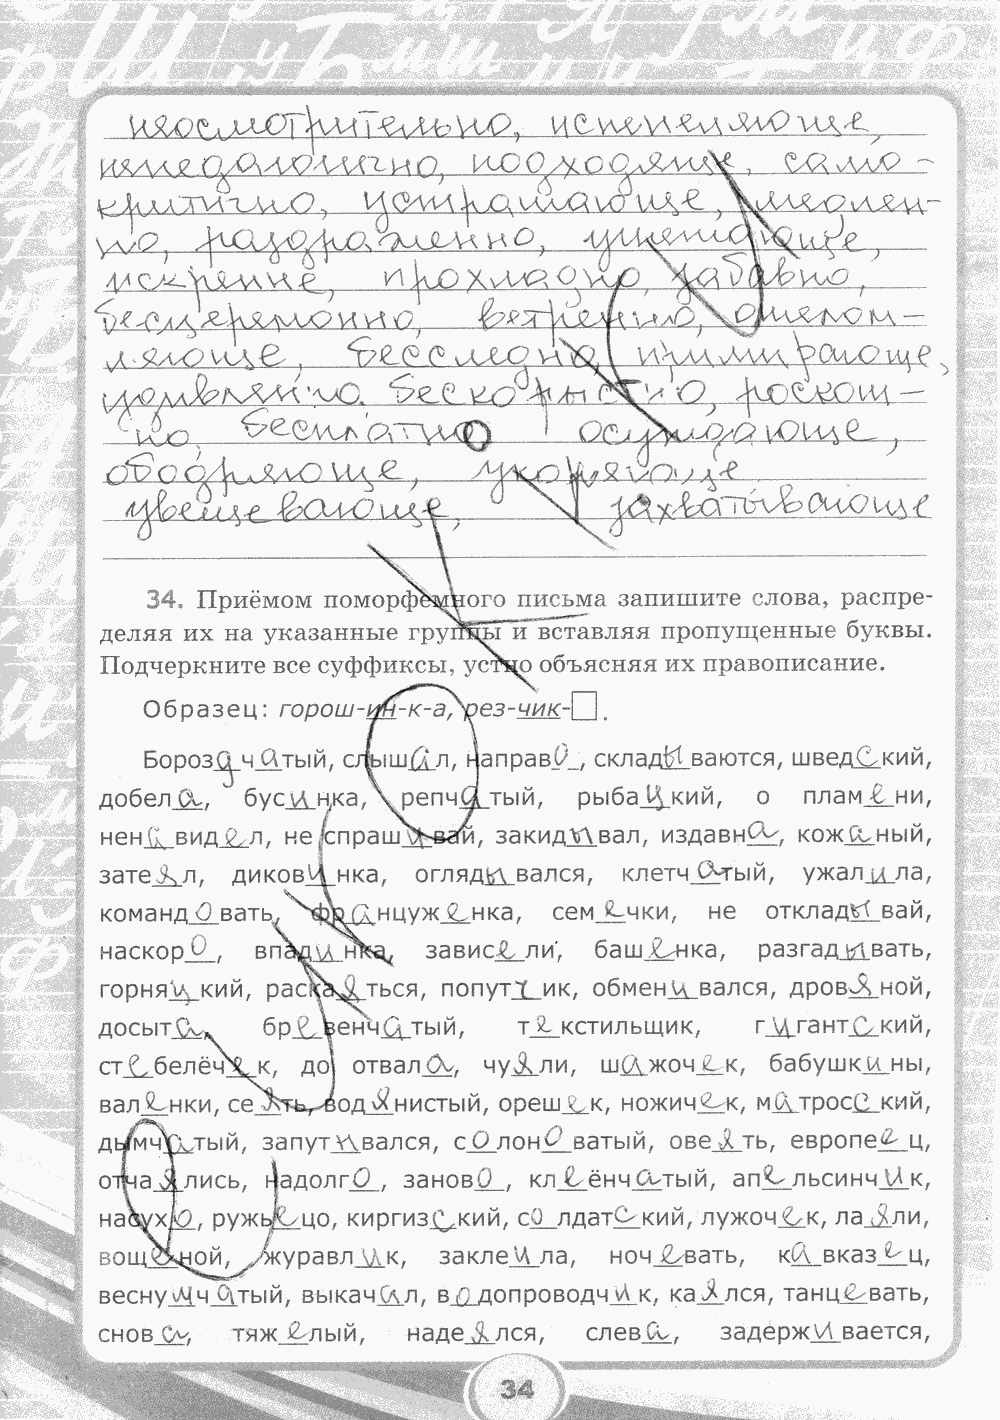 неосмотрительно, испепеляюще,
непедагогично, подходяще, само-
критично, устрашающе, медлен-
но, раздраженно, угнетающе,
искренне, прохладно, забавно,
бесцеремонно, ветренно, ошелом-
ляюще, бесследно, примиряюще,
удивленно, бескорыстно, роскош-
но, бесплатно осуждающе,
ободряюще, укоряюще
увещевающе, захватывающе
34. Приёмом поморфемного письма запишите слова, распре-
деляя их на указанные группы и вставляя пропущенные буквы.
Подчеркните все суффиксы, устно объясняя их правописание.
Образец: горош-ин-к-а, рез-чик-□.
Бороздчатый, слышал, направо, складываются, шведский,
добела, бусинка, репчатый, рыбацкий, о пламени,
ненавидел, не спрашивай, закидывал, издавна, кожаный,
затеял, диковинка, оглядывался, клетчатый, ужалила,
командовать, француженка, семечки, не откладывай,
наскоро, впадинка, зависели, башенка, разгадывать,
горняцкий, раскаяться, попутчик, обменивался, дровяной,
досыта, бревенчатый, текстильщик, гигантский,
стебелёчек, до отвала, чуяли, шажочек, бабушкины,
валенки, сеять, водянистый, орешек, ножичек, матросский,
дымчатый, запутывался, солоноватый, овеять, европеец,
отчаялись, надолго, заново, клеёнчатый, апельсинчик,
насухо, ружьецо, киргизский, солдатский, лужочек, лаяли,
вощеной, журавлик, заклеила, ночевать, кавказец,
веснушчатый, выкачал, водопроводчик, каялся, танцевать,
снова, тяжелый, надеялся, слева, задерживается,
34